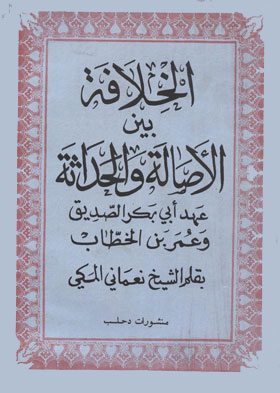 الخلافة
بين
الأصالة والحداثة
عهد أبي بكر الصديق
وعمر بن الخطاب
بقلم الشيخ نعماني المكي
منشورات دحلب